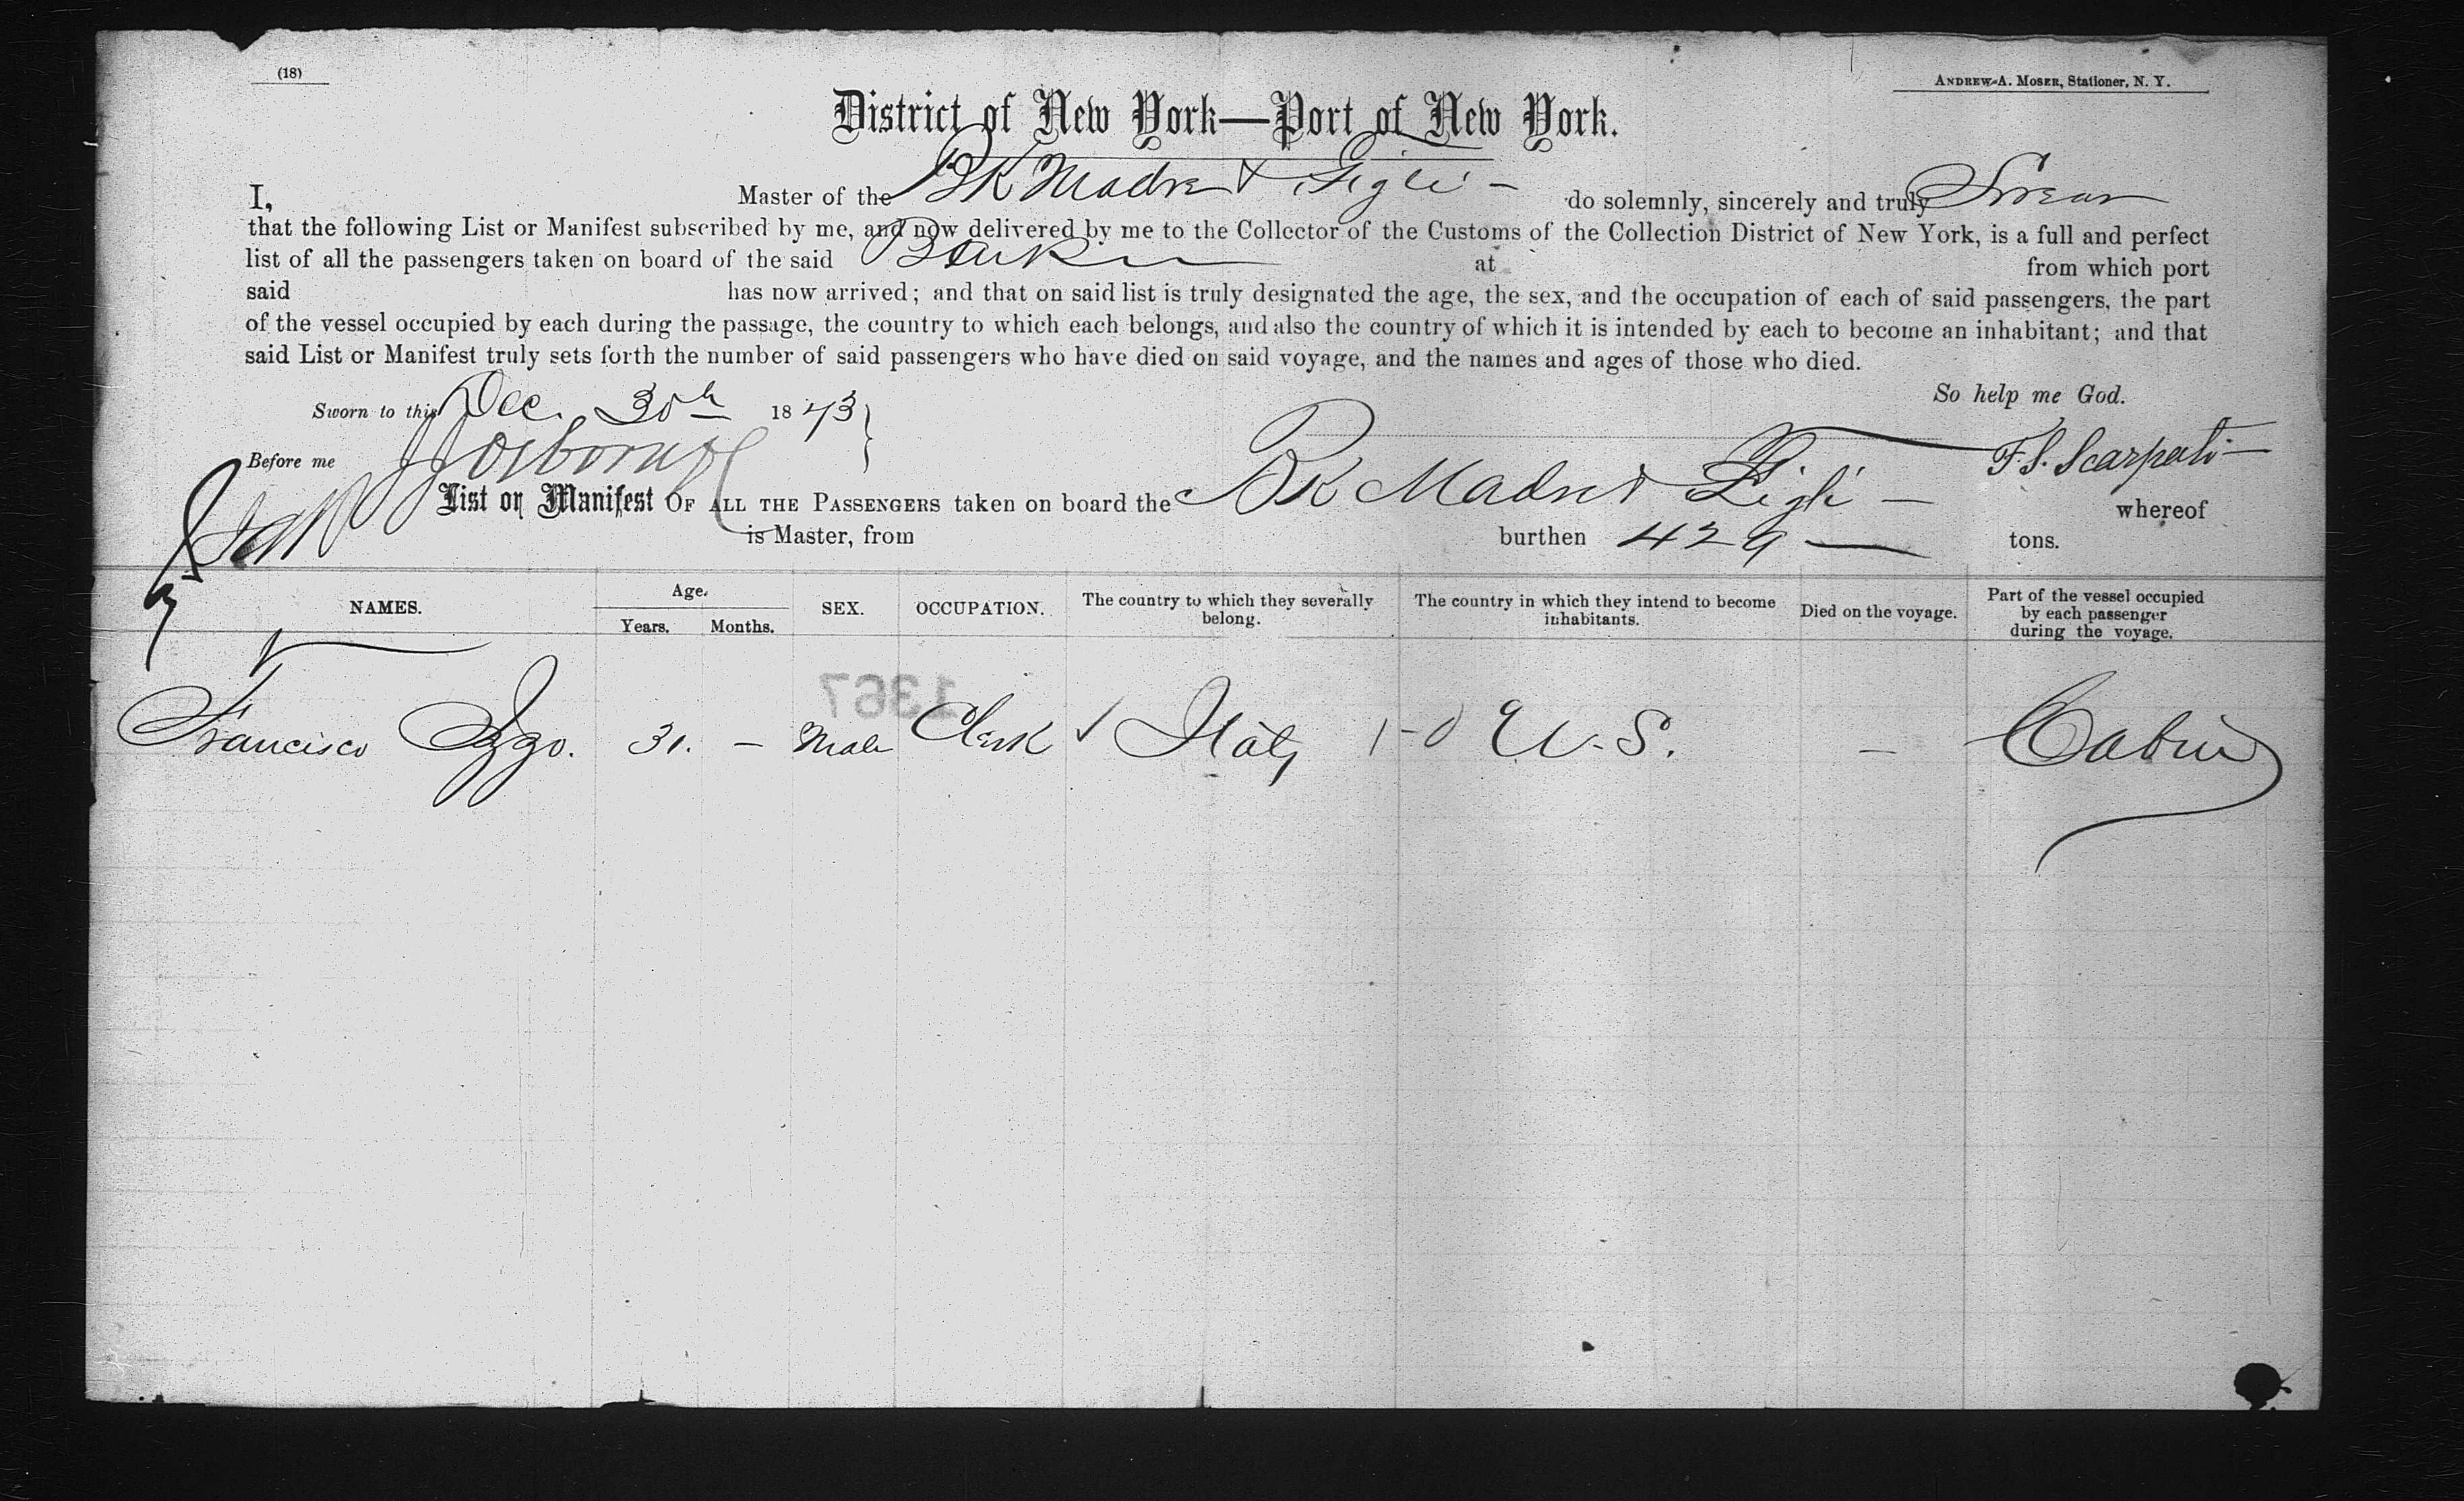 (18)
ANDREW A. MOSER, Stationer, N. Y.
District of New York—Port of New York.
I, Master of the Bk Madre & Figli - do solemnly, sincerely and truly Swear
that the following List or Manifest subscribed by me, and now delivered by me to the Collector of the Customs of the Collection District of New York, is a full and perfect
list of all the passengers taken on board of the said Bark at from which port
said has now arrived; and that on said list is truly designated the age, the sex, and the occupation of each of said passengers, the part
of the vessel occupied by each during the passage, the country to which each belongs, and also the country of which it is intended by each to become an inhabitant; and that
said List or Manifest truly sets forth the number of said passengers who have died on said voyage, and the names and ages of those who died.
So help me God.
Sworn to this Dec. 30th 1873
F. S. Scarpati
Before me
List or Manifest OF ALL THE PASSENGERS taken on board the Bk Madre & Figli - whereof
is Master, from burthen 429 tons.
NAMES. Age. Years. Months. SEX. OCCUPATION. The country to which they severally belong. The country in which they intend to become inhabitants. Died on the voyage. Part of the vessel occupied by each passenger during the voyage.
1367
Francisco Izzo. 31. — Male Clerk ✓ Italy U.S. — Cabin